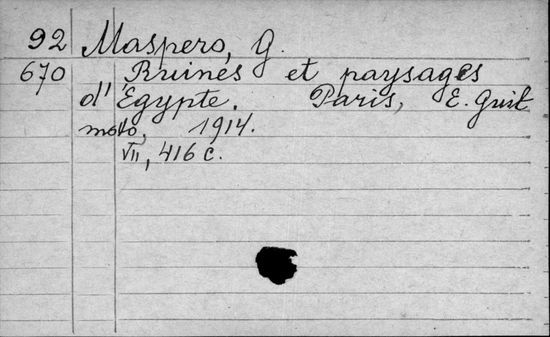 92 Maspero, G.
670 Ruines et paysages
d'Égypte. Paris, E. Guil
moto, 1914.
VII, 416 c.